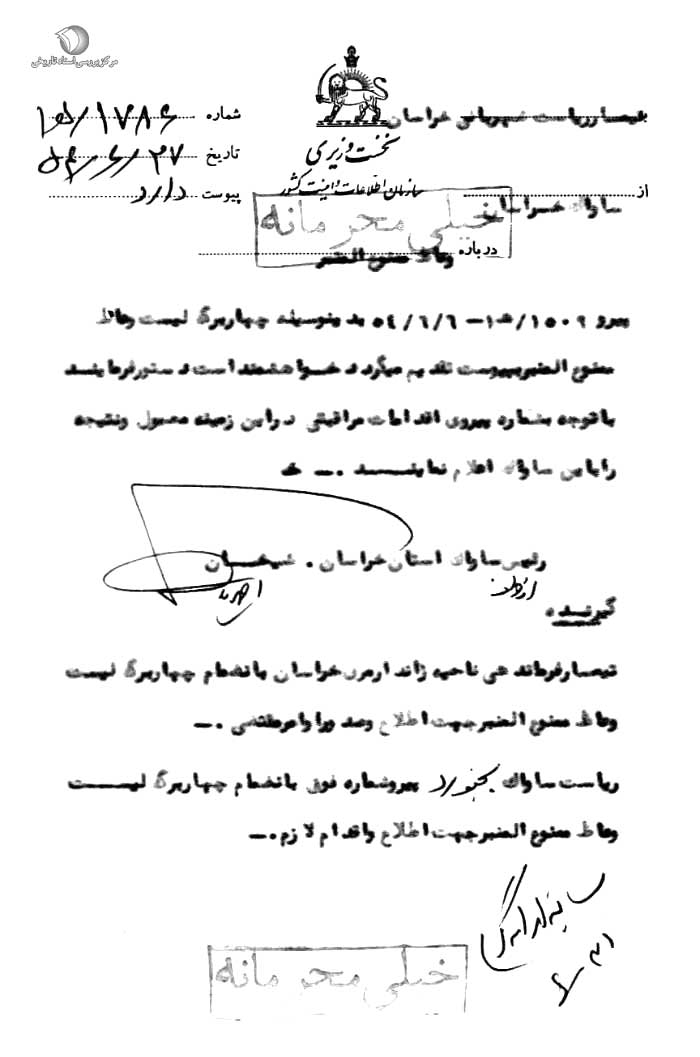 مرکز بررسی اسناد تاریخی
تیمسار ریاست شهربانی خراسان
نخست وزیری
سازمان اطلاعات و امنیت کشور
شماره
تاریخ ۵۴/۶/۲۷
پیوست دارد
از ساواک خراسان
خیلی محرمانه
درباره وعاظ ممنوع المنبر
پیرو ۱۵۰۲/ﻫ۱-۵٤/٦/٦ بدینوسیله چهاربرگ لیست وعاظ
ممنوع المنبر بپیوست تقدیم میگردد خواهشمند است دستور فرمایند
باتوجه بشماره پیروی اقدامات مراقبتی دراین زمینه معمول ونتیجه
را باین ساواک اعلام نمایند .ــ
رئیس ساواک استان خراسان . شیخان
گیرنده
تیمسار فرماندهی ناحیه ژاندارمری خراسان بانضمام چهاربرگ لیست
وعاظ ممنوع المنبر جهت اطلاع وصدور اوامر مقتضی .ــ
ریاست ساواک بجنورد پیروشماره فوق بانضمام چهاربرگ لیست
وعاظ ممنوع المنبر جهت اطلاع واقدام لازم .ــ
۶/۳۱
خیلی محرمانه